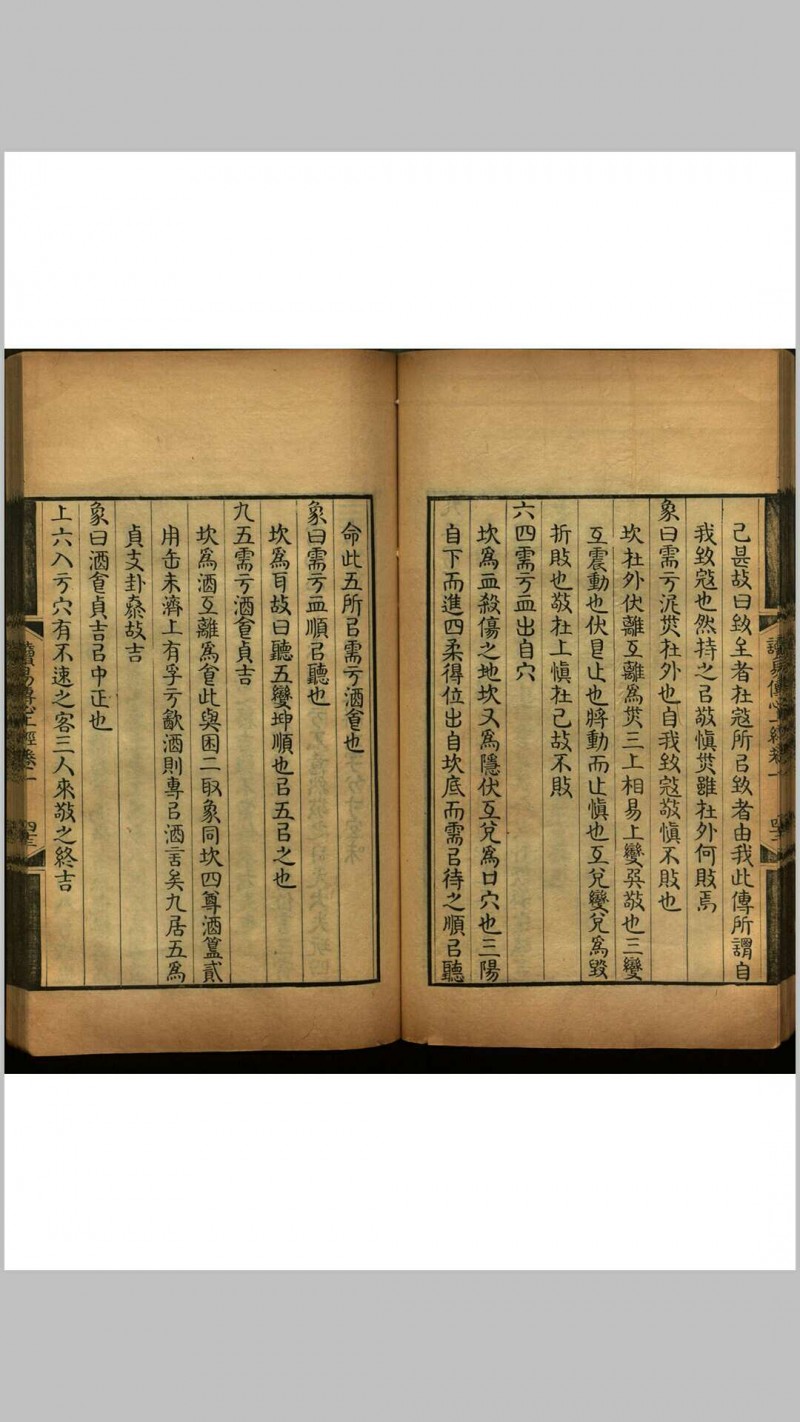 讀易傳心上經卷一
己甚故曰致至者在寇所㠯致者由我此傳所謂自
我致寇也然持之㠯敬愼烖雖在外何敗焉
象曰需亏泥烖在外也自我致寇敬愼不敗也
坎在外伏離互離爲烖三上相易上變巽敬也三變
互震動也伏艮止也將動而止愼也互兌變兌爲毀
折敗也敬在上愼在己故不敗
六四需亏血出自穴
坎爲血殺傷之地坎又爲隱伏互兌爲口穴也三陽
自下而進四柔得位出自坎底而需㠯待之順㠯聽
命此五所㠯需亏酒食也
象曰需亏血順㠯聽也
坎爲耳故曰聽五變坤順也㠯五㠯之也
九五需亏酒食貞吉
坎爲酒互離爲食此與困二取象同坎四尊酒簋貳
用缶未濟上有孚亏㱃酒則專㠯酒言矣九居五爲
貞支卦泰故吉
象曰酒食貞吉㠯中正也
上六入亏穴有不速之客三人來敬之終吉
讀易傳心上經卷一